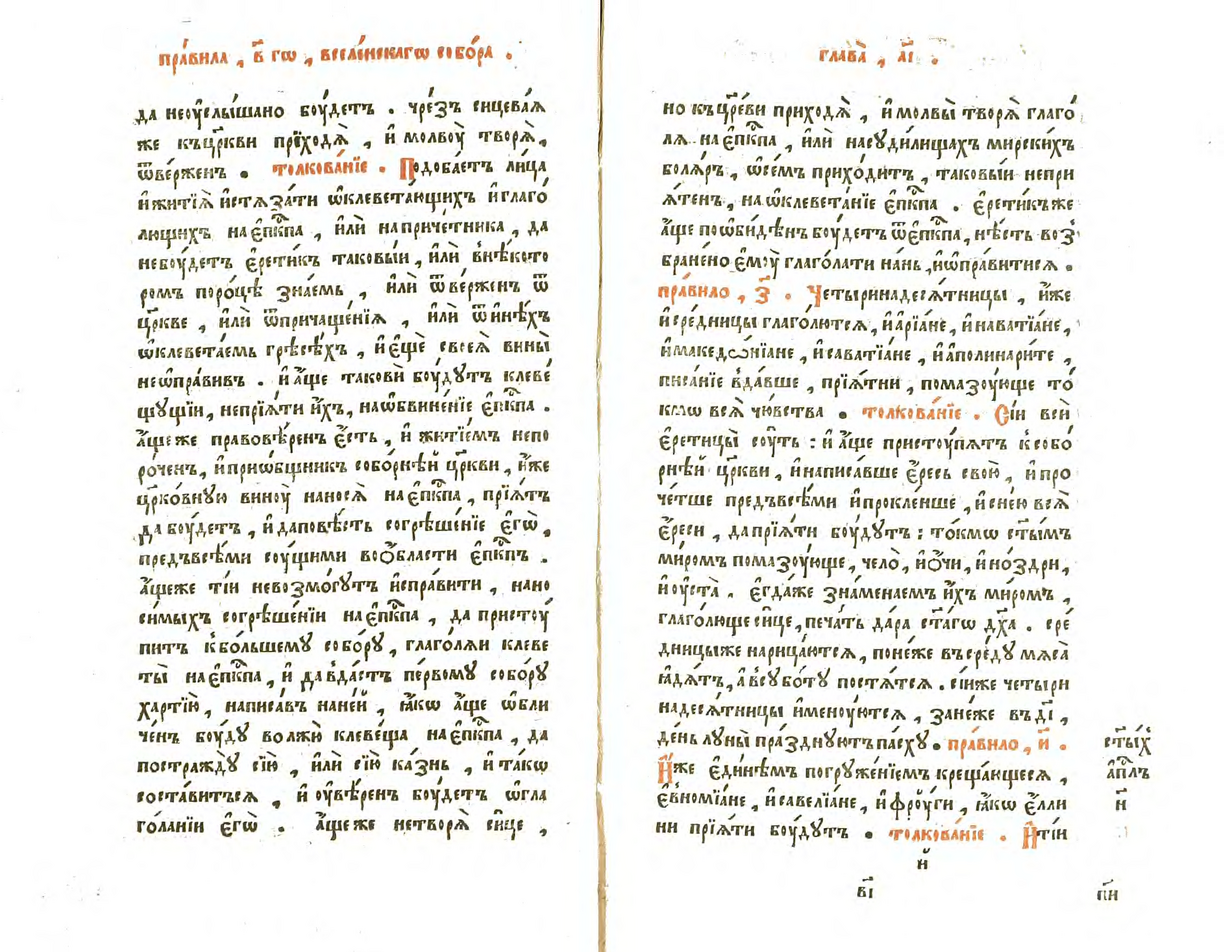 пра́вила , в҃ гѡ , вселе́нскагѡ собо́ра .
да неоуслы́шано боу́детъ . чре́зъ сицевая
же къцр҃кви прїходѧ̀ , и҆ молвоу̀ творѧ̀ ,
ѿве́рженъ . толкова́нїе . Подоба́етъ лица
и҆житїѧ̀ и҆стѧза́ти ѡ҆клевета́ющихъ и҆глаго́
лющихъ наеп҃кпа , и҆лѝ напричетника , да
небоу́детъ є҆рети́к таковы́и , и҆лѝ внѣ́кото
ромъ поро́цѣ зна́емь , и҆лѝ ѿве́ржен ѿ
цр҃кве , и҆лѝ ѿпричаще́нїѧ , и҆лѝ ѿи҆нѣ́хъ
ѡ҆клевета́емь грѣсѣ́хъ , и҆є҆щѐ своеѧ̀ вины̀
неѡ҆пра́вивъ . и҆а҆́ще такови̇̀ боу́дутъ клеве́
щущїи , непрїѧ́ти и҆́хъ , наѡ҆бвине́нїе еп҃кпа .
а҆́ще же правовѣ́ренъ є҆́сть , и҆ житїе́мъ непо
ро́ченъ , и҆прио́бщникъ собо́рнѣй цр҃кви , и҆́же
цр҃ко́вную виноу̀ наносѧ̀ наеп҃кпа , прїѧ́тъ
да боу́детъ , и҆даповѣ́сть согрѣше́нїе є҆гѡ̀ ,
предъвсѣ́ми соу́щими воо́бласти еп҃кпъ .
а҆́щеже тїи невозмо́гутъ и҆спра́вити , нано
си́мыхъ согрѣше́нїи наеп҃кпа , да пристоу́
питъ кбо́льшему собо́ру , глаго́лѧи клеве
ты̀ наеп҃кпа , и҆ да вда́стъ пе́рвому собо́ру
харті́ю , написа́въ нане́й , ꙗ҆́кѡ а҆́ще ѡ҆бли
че́нъ боу́ду во лжю̀ клевеща̀ наеп҃кпа , да
постра́жду сїю̀ , и҆лѝ сїю̀ ка́знь , и҆ та́кѡ
соста́витьсѧ , и҆ оувѣ́ренъ боу́детъ ѡ҆гла
го́ланїи є҆гѡ̀ . а҆́ще же нетворѧ̀ си́це ,
глава̀ , а҃і .
но къцр҃еви приходѧ̀ , и҆молвы̀ творѧ̀ глаго́
лѧ наеп҃кпа , и҆лѝ насуди́лищахъ мирскихъ
болѧ́ръ , ѡ҆се́мъ прихо́дитъ , таковы́и непри
ѧ́тенъ , наѡ҆клевета́нїе еп҃кпа . є҆рети́къже
а҆́ще поѡ҆би́дѣнъ боу́детъ ѿеп҃кпа , нѣ́сть воз
бране́но є҆моу̀ глаго́лати нань , и҆ѡ҆пра́витисѧ .
пра́вило , з҃ . Четыринадесѧ́тницы , и҆́же
и҆сре́дницы глаго́лютсѧ , и҆а҆рїа́не , и҆навати́ане ,
и҆македѡнїане , и҆саватїа́не , и҆а҆полинари́те ,
писа́нїе вда́вше , прїѧ́тни , помазоу́юще то́
кмѡ всѧ̀ чю́вства . толкова́нїе . Сїи всѝ
є҆ретицы̀ соу́ть : и҆ а҆́ще пристоу́пѧтъ ксобо́
рнѣй цр҃кви , и҆написа́вше є҆́ресь свою̀ , и҆про
че́тше предъвсѣ́ми и҆прокле́нше , и҆снею всѧ̀
є҆́реси , дапрїѧ́ти боу́дутъ : то́кмѡ ст҃ы́мъ
ми́ромъ помазоу́юще , чело̀ , и҆о́чи , и҆но́здри ,
и҆оу́ста . є҆гда́же зна́менаемъ и҆́хъ ми́ромъ ,
глаго́люще си́це , печа́ть да́ра ст҃а́гѡ дх҃а . сре́
дницыже нарица́ютсѧ , поне́же въсре́ду мѧса̀
ꙗ҆дѧ́тъ , а҆всубо́ту постѧ́тсѧ . сїиже четыри
надесѧ́тницы и҆менꙋ́ютсѧ , зане́же въд҃і ,
де́нь луны̀ пра́зднуютъ па́сху . пра́вило , и҃ .
И҆́же є҆ди́нѣмъ погруже́нїемъ креща́ющесѧ ,
є҆вномїа́не , и҆савелїа́не , и҆ фроу́ги , ꙗ҆́кѡ є҆́лли
ни прїѧ́ти боу́дутъ . толкова́нїе . И҆тїи
ст҃ы́х
а҆пл҃ъ
и҃
и҃
в҃і
п҃и